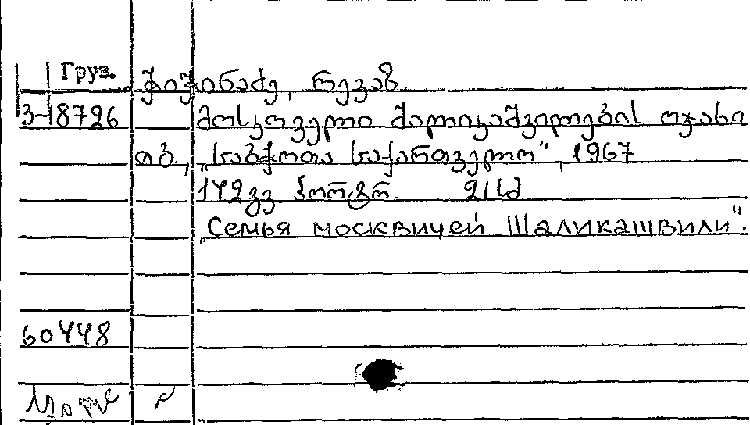 Груз. ჭიჭინაძე, რევაზ
3-18726 მოსკოველი შალიკაშვილების ოჯახი
თბ., „საბჭოთა საქართველო", 1967
172 გვ პორტრ. 21სმ
„Семья москвичей Шаликашвили".
60448